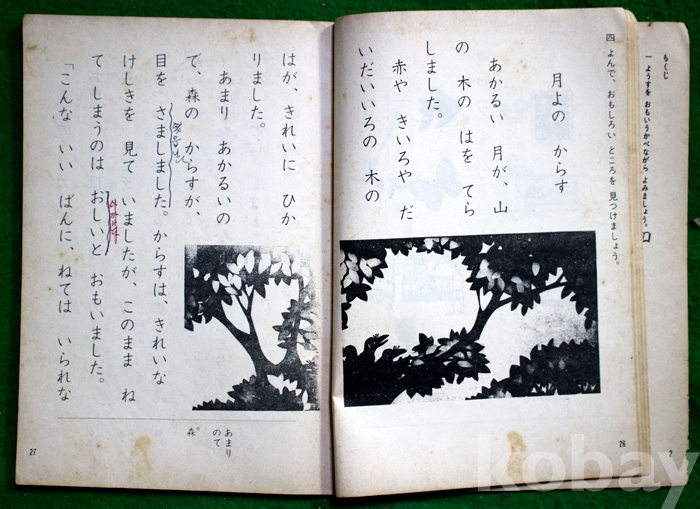 もくじ
一 ようすを おもいうかべながら よみましょう。
四 よんで、おもしろい ところを 見つけましょう。
月よの からす
あかるい 月が、山
の 木の はを てら
しました。
赤や きいろや だ
いだいいろの 木の
26
2
はが、きれいに ひか
りました。
あまり あかるいの
で、森の からすが、
目を さましました。からすは、きれいな
けしきを 見て いましたが、このまま ね
て しまうのは おしいと おもいました。
「こんな いい ばんに、ねては いられな
あまり
のて
森
27
kobay